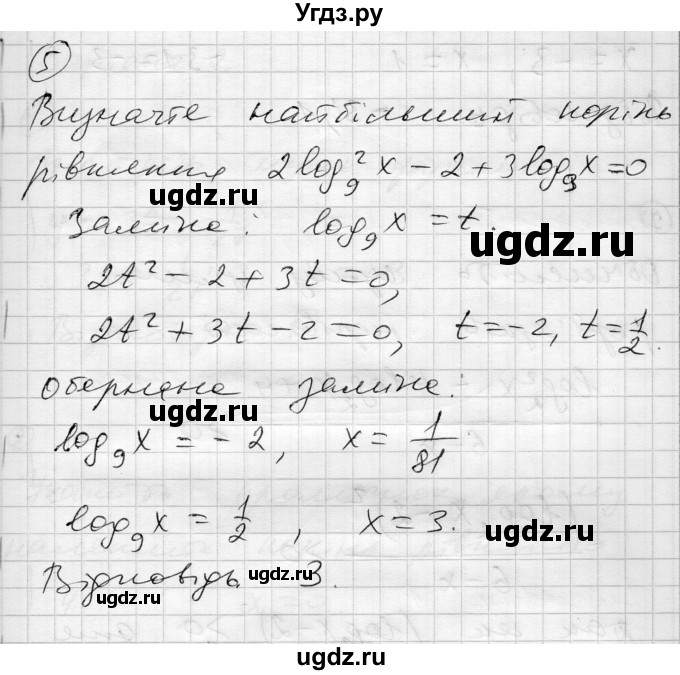 Угдз.ру
5
Визначте найбільший корінь
рівняння 2log₉²x - 2 + 3log₉x = 0
ugdz.ru ugdz.ru
Заміна: log₉x = t.
2t² - 2 + 3t = 0,
2t² + 3t - 2 = 0, t = -2, t = 1/2.
ugdz.ru ugdz.ru
Обернена заміна:
ugdz.ru
log₉x = -2, x = 1/81
log₉x = 1/2, x = 3.
ugdz.ru
Відповідь 3.
ugdz.ru
ugdz.ru
ugdz.ru